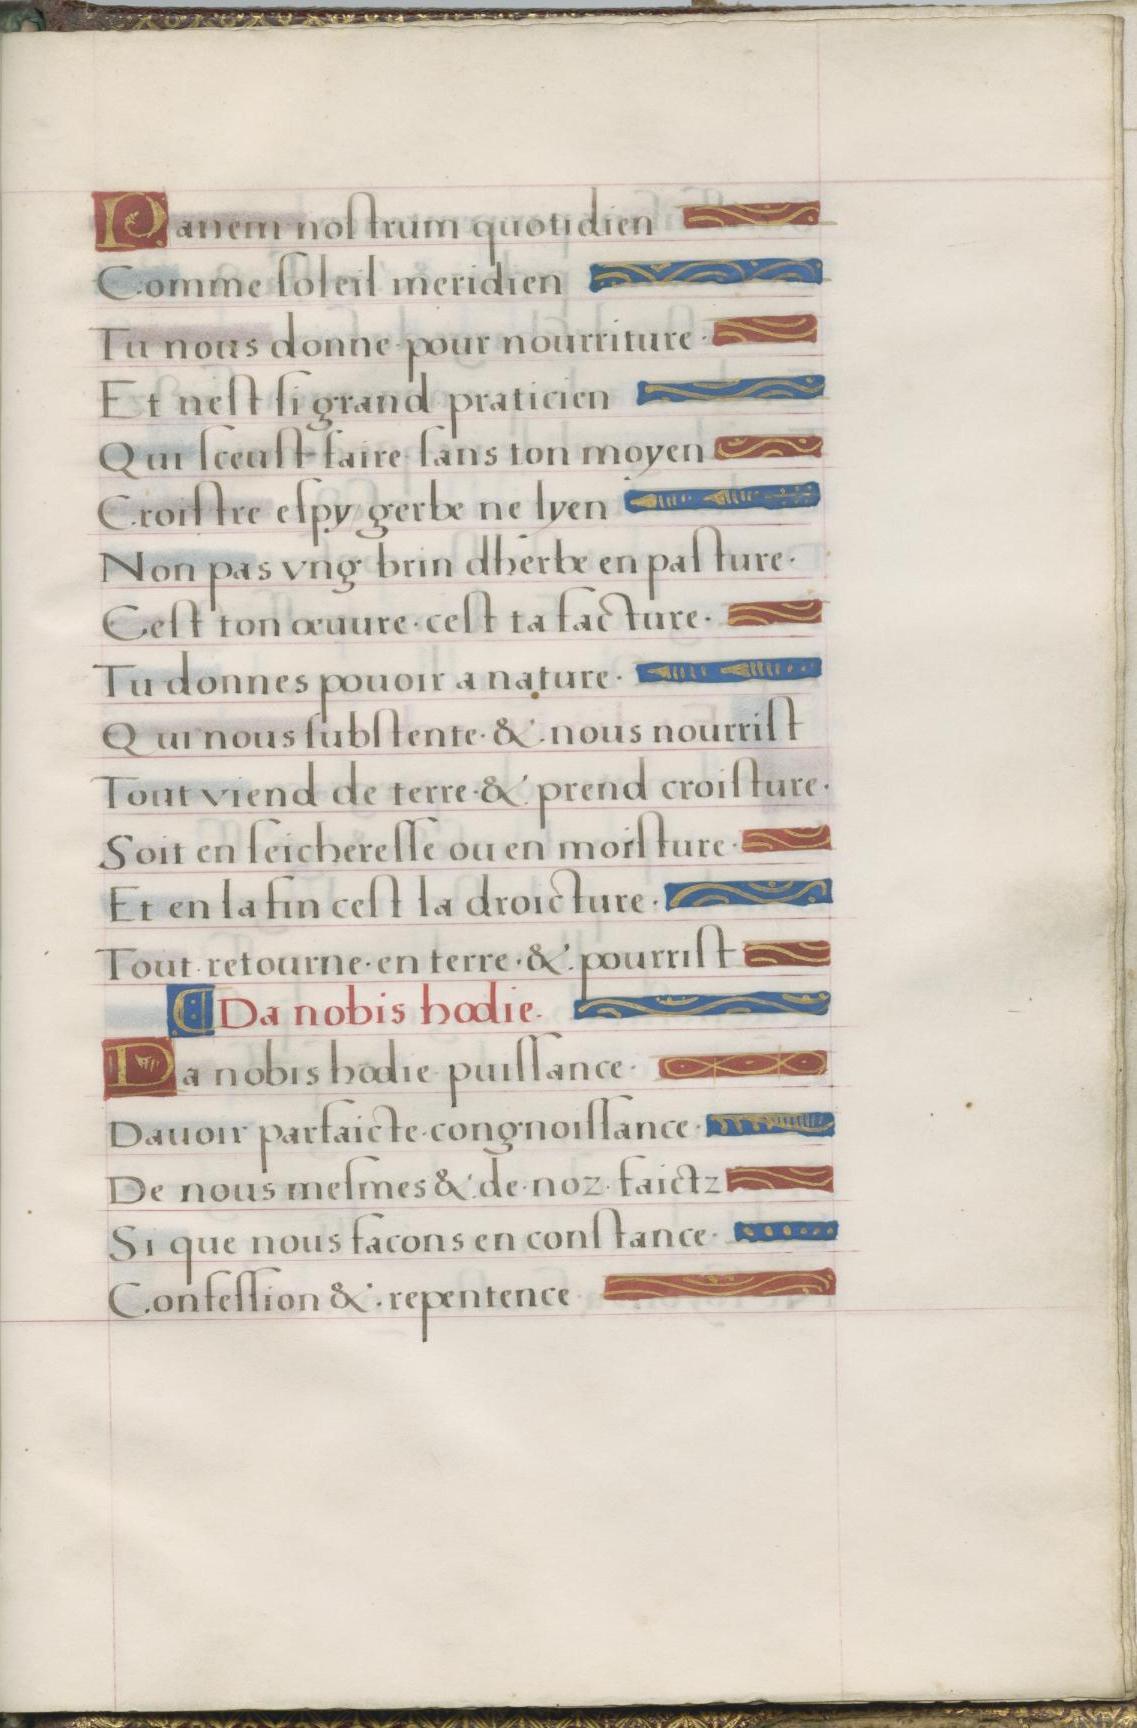 Panem noſtrum quotidien
Comme ſoleil meridien
Tu nous donne pour nourriture·
Et neſt ſi grand praticien
Qui ſceuſt faire ſans ton moyen
Croiſtre eſpy gerbe ne lyen
Non pas vng brin dherbe en paſture·
Ceſt ton œuure·ceſt ta facture·
Tu donnes pouoir a nature·
Qui nous ſubſtente·&·nous nourriſt
Tout viend de terre·&·prend croiſture·
Soit en ſeichereſſe ou en moiſture·
Et en la fin ceſt la droicture·
Tout retourne·en terre·&·pourriſt
Da nobis hodie·
Da nobis hodie puiſſance·
Dauoir parfaicte·congnoiſſance·
De nous meſmes &·de·noz·faictz
Si que nous facons en conſtance·
Confeſſion &·repentence